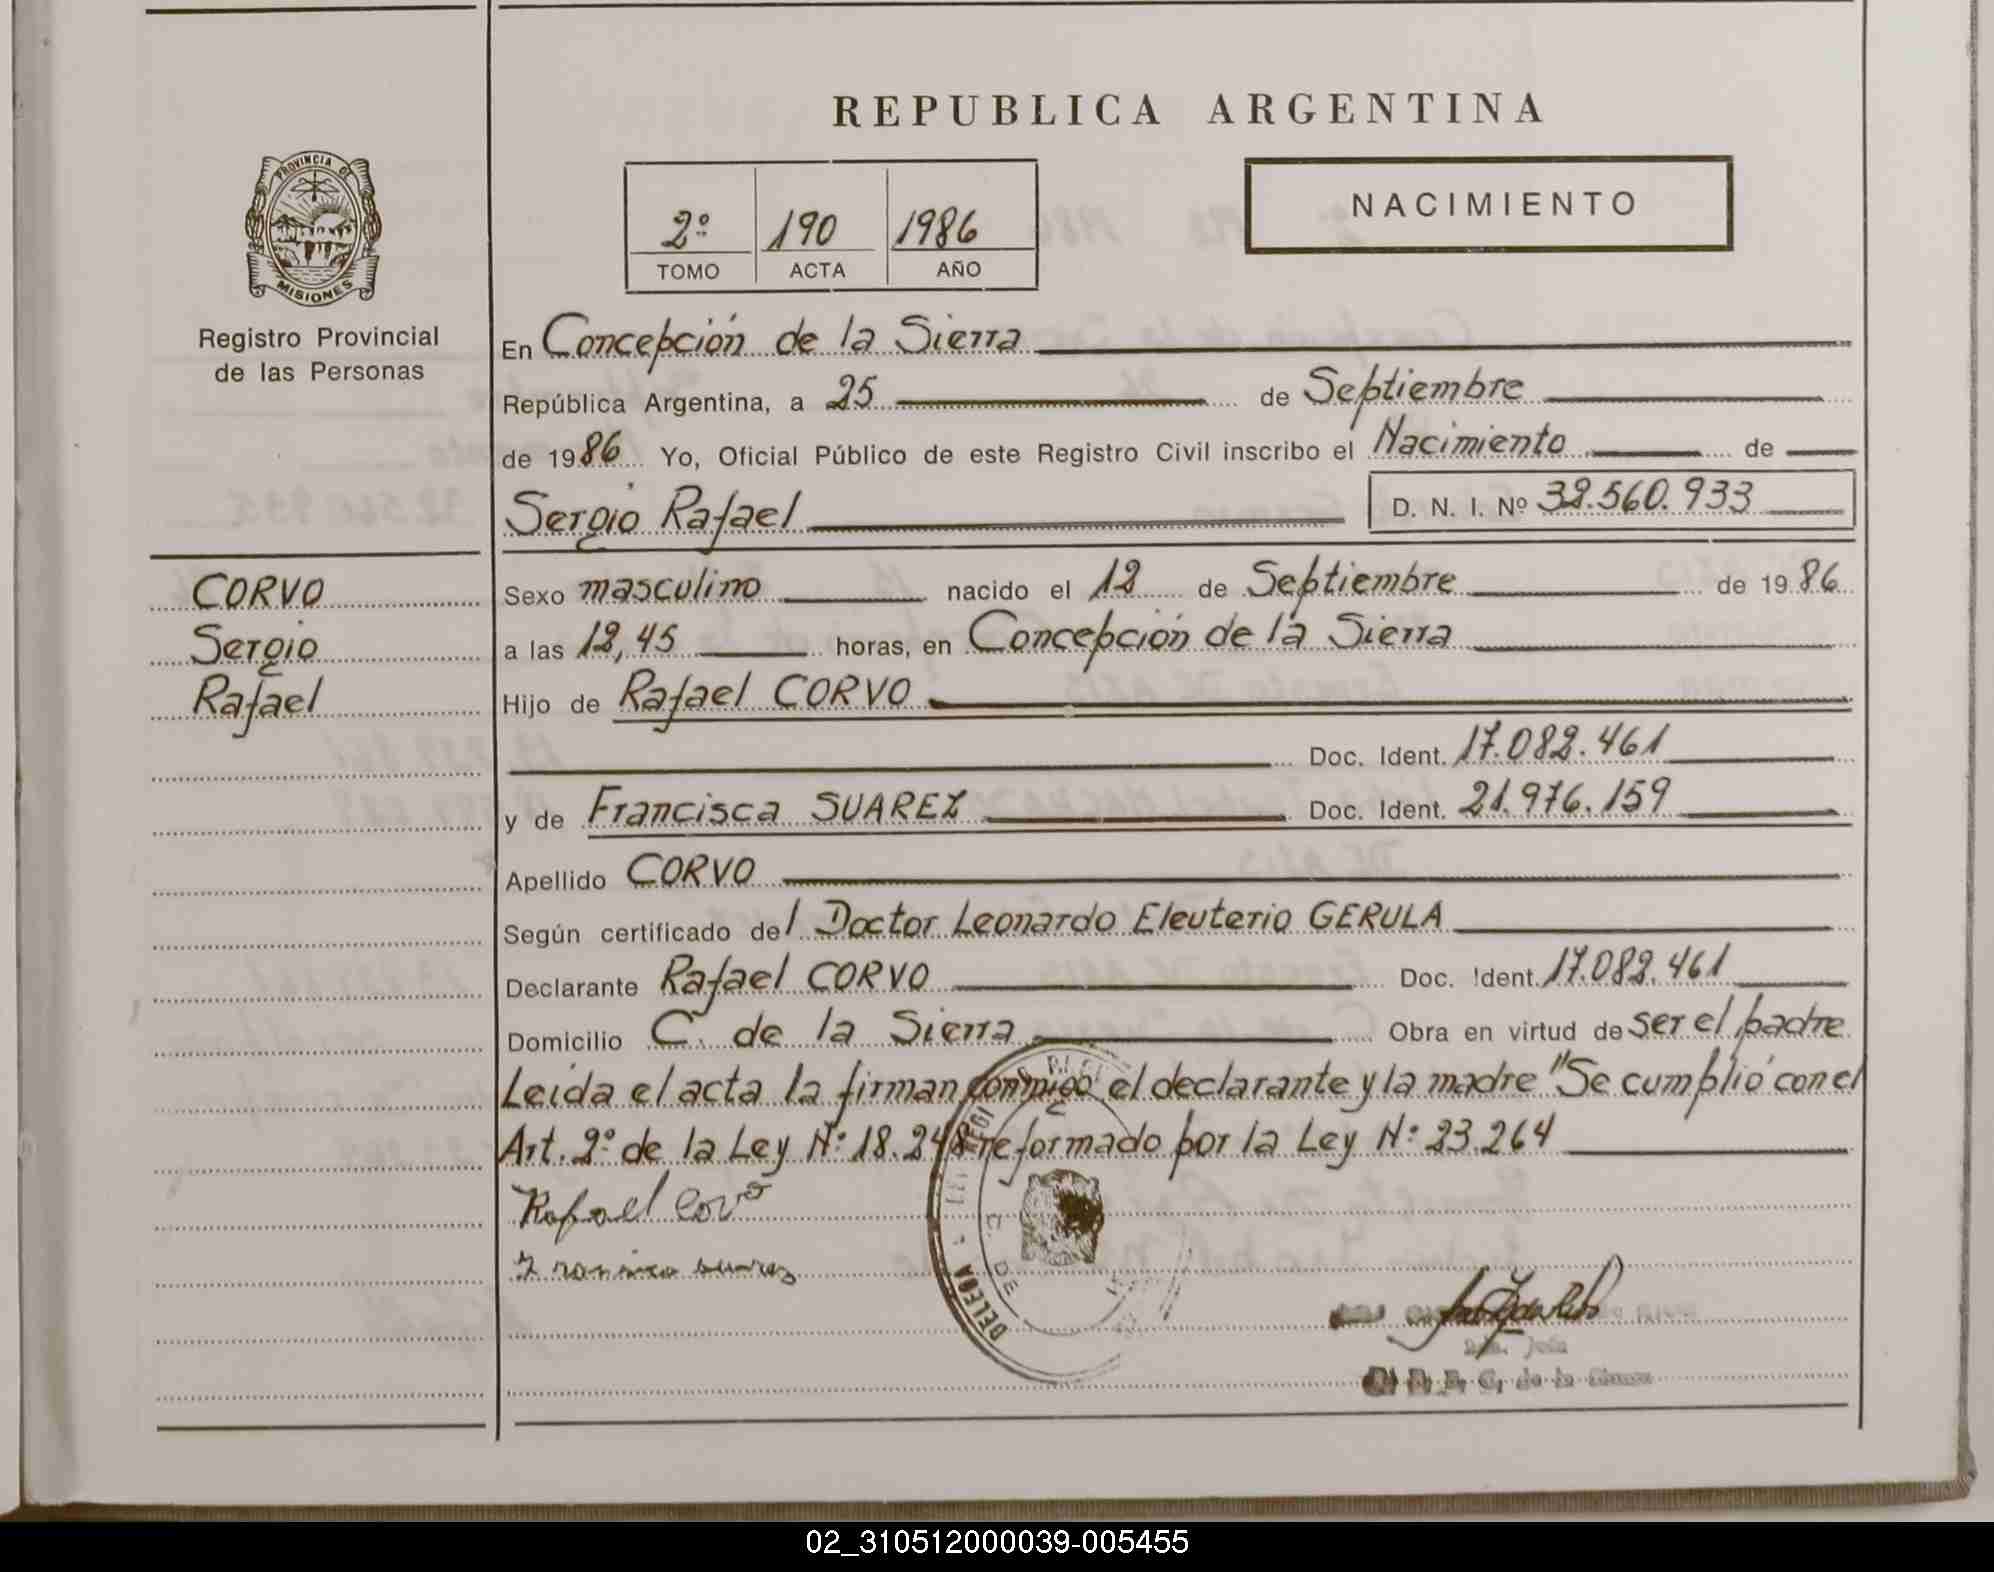 REPUBLICA ARGENTINA
PROVINCIA DE
MISIONES
Registro Provincial
de las Personas
2º 190 1986
TOMO ACTA AÑO
NACIMIENTO
En Concepción de la Sierra
República Argentina, a 25 de Septiembre
de 1986 Yo, Oficial Público de este Registro Civil inscribo el Nacimiento de
Sergio Rafael D. N. I. Nº 32.560.933
CORVO
Sergio
Rafael
Sexo masculino nacido el 12 de Septiembre de 1986
a las 12,45 horas, en Concepción de la Sierra
Hijo de Rafael CORVO
Doc. Ident. 17.082.461
y de Francisca SUAREZ Doc. Ident. 21.976.159
Apellido CORVO
Según certificado del Doctor Leonardo Eleuterio GERULA
Declarante Rafael CORVO Doc. Ident. 17.082.461
Domicilio C. de la Sierra Obra en virtud de ser el padre
Leída el acta la firman conmigo el declarante y la madre "Se cumplió con el
Art. 2º de la Ley Nº 18.248 reformado por la Ley Nº 23.264
Rafael Covo
suarez
C. de la Sierra
02_310512000039-005455